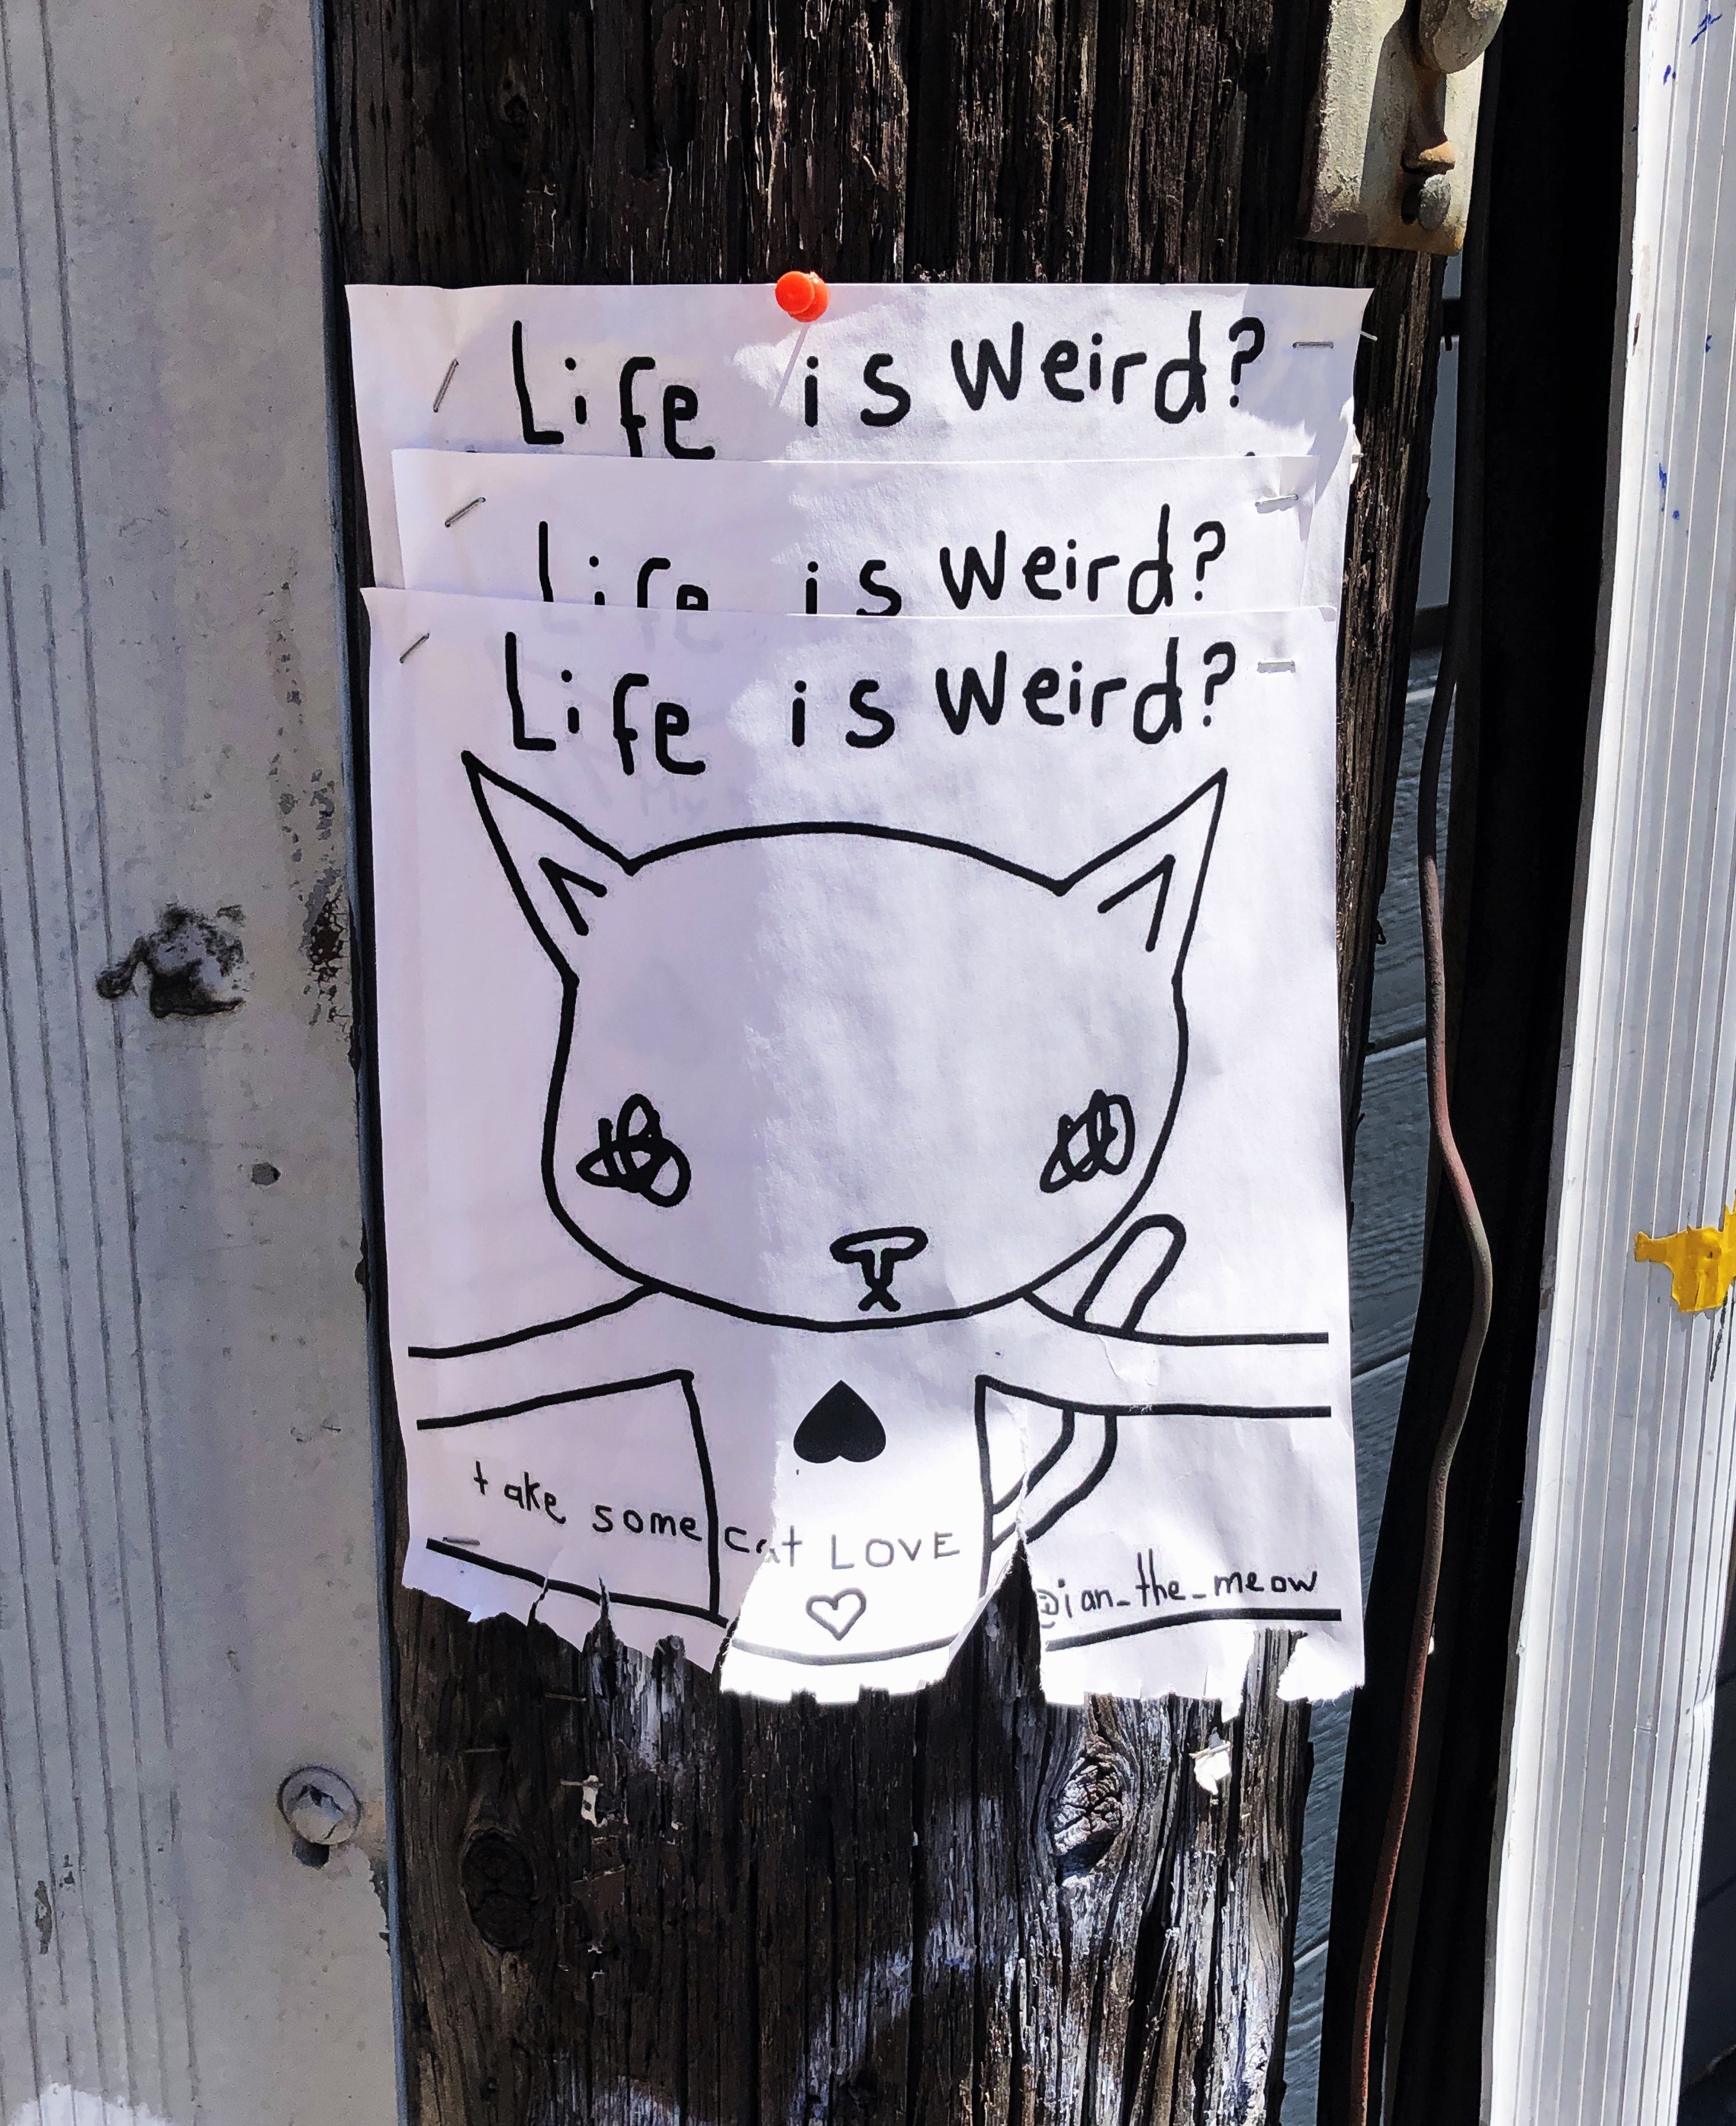 Life is Weird?
Life is Weird?
Life is Weird?
take some cat LOVE
@ian_the_meow